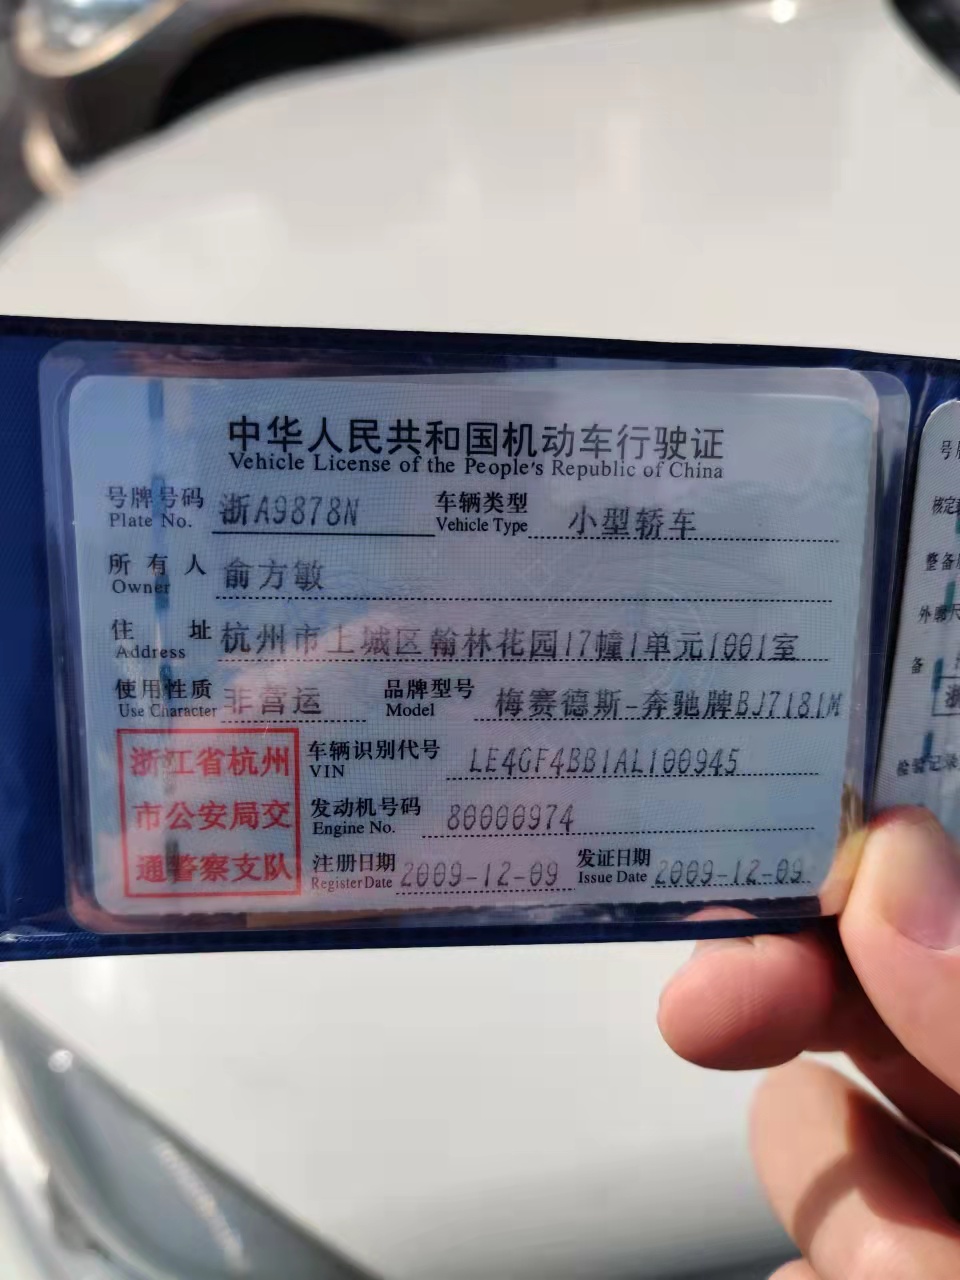 中华人民共和国机动车行驶证
Vehicle License of the People's Republic of China
号牌号码 浙A9878N 车辆类型 小型轿车
Plate No. Vehicle Type
所有人 俞方敏
Owner
住址 杭州市上城区翰林花园17幢1单元1001室
Address
使用性质 非营运 品牌型号 梅赛德斯-奔驰牌BJ7181M
Use Character Model
浙江省杭州
市公安局交
通警察支队
车辆识别代号 LE4GF4BB1AL100945
VIN
发动机号码 80000974
Engine No.
注册日期 2009-12-09 发证日期 2009-12-09
Register Date Issue Date
号牌
核定载
整备质
外廓尺
备
检验记录